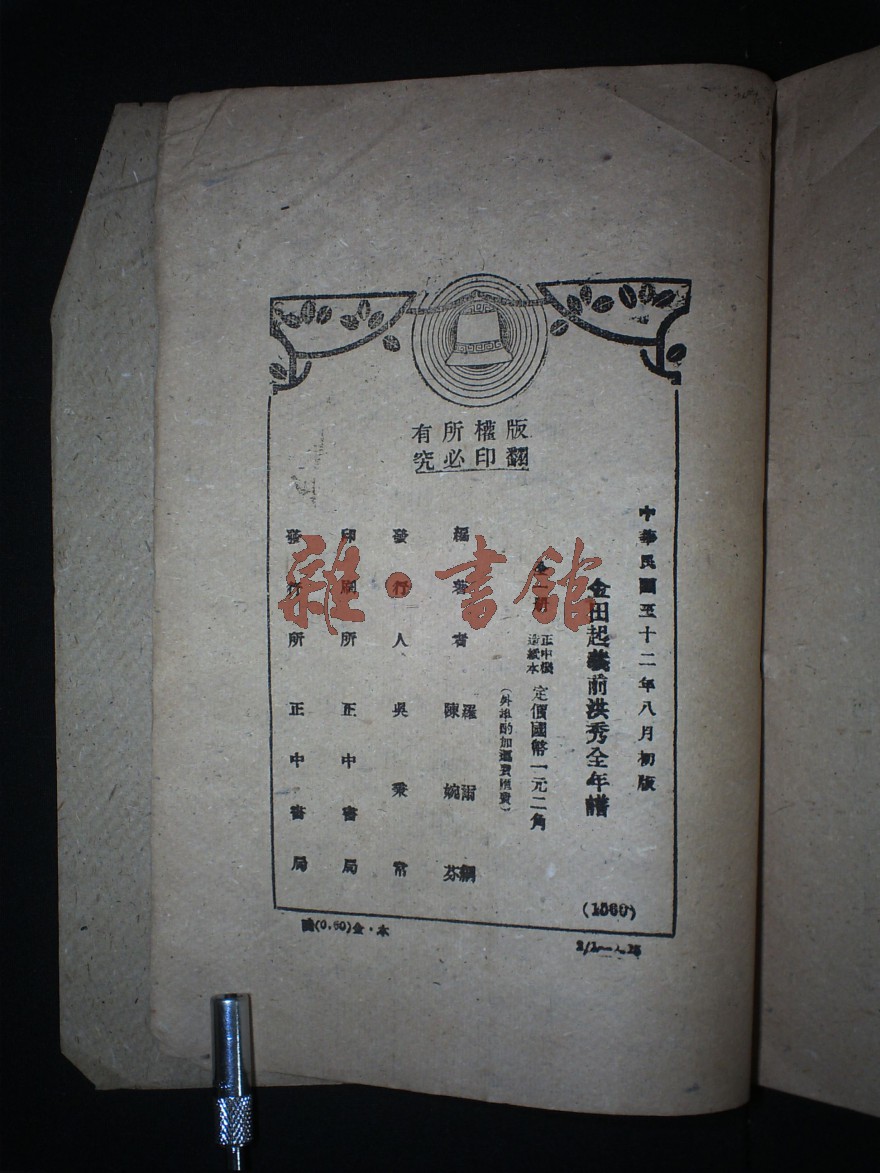 版權所有
翻印必究
中華民國三十二年八月初版
金田起義前洪秀全年譜
全一册 正中機造紙本 定價國幣一元二角
(外埠酌加運費匯費)
編著者 羅爾綱 陳婉芬
發行人 吳秉常
印刷所 正中書局
發行所 正中書局
(1560)
(0.60)金·本
雜·書館